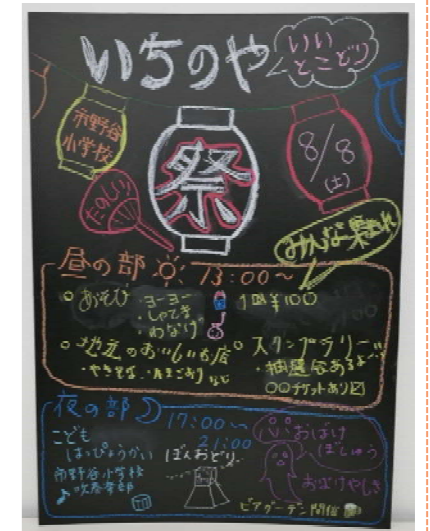 いちのや
いい
とこどり
市野谷
小学校
祭
8/8
(土)
たのしい
みんな集まれ
昼の部 13:00〜
○あそび ・ヨーヨー 1回¥100
・しゃてき
・わなげ
○地元のおいしいお店
・やきそば ・かきごおり など
○スタンプラリー
・抽選会あるよ
○○チケットあり
夜の部 17:00〜
21:00
こども
はっぴょうかい
市野谷小学校
吹奏楽部
ぼんおどり
おばけ
ぼしゅう
おばけやしき
ビアガーデン開催